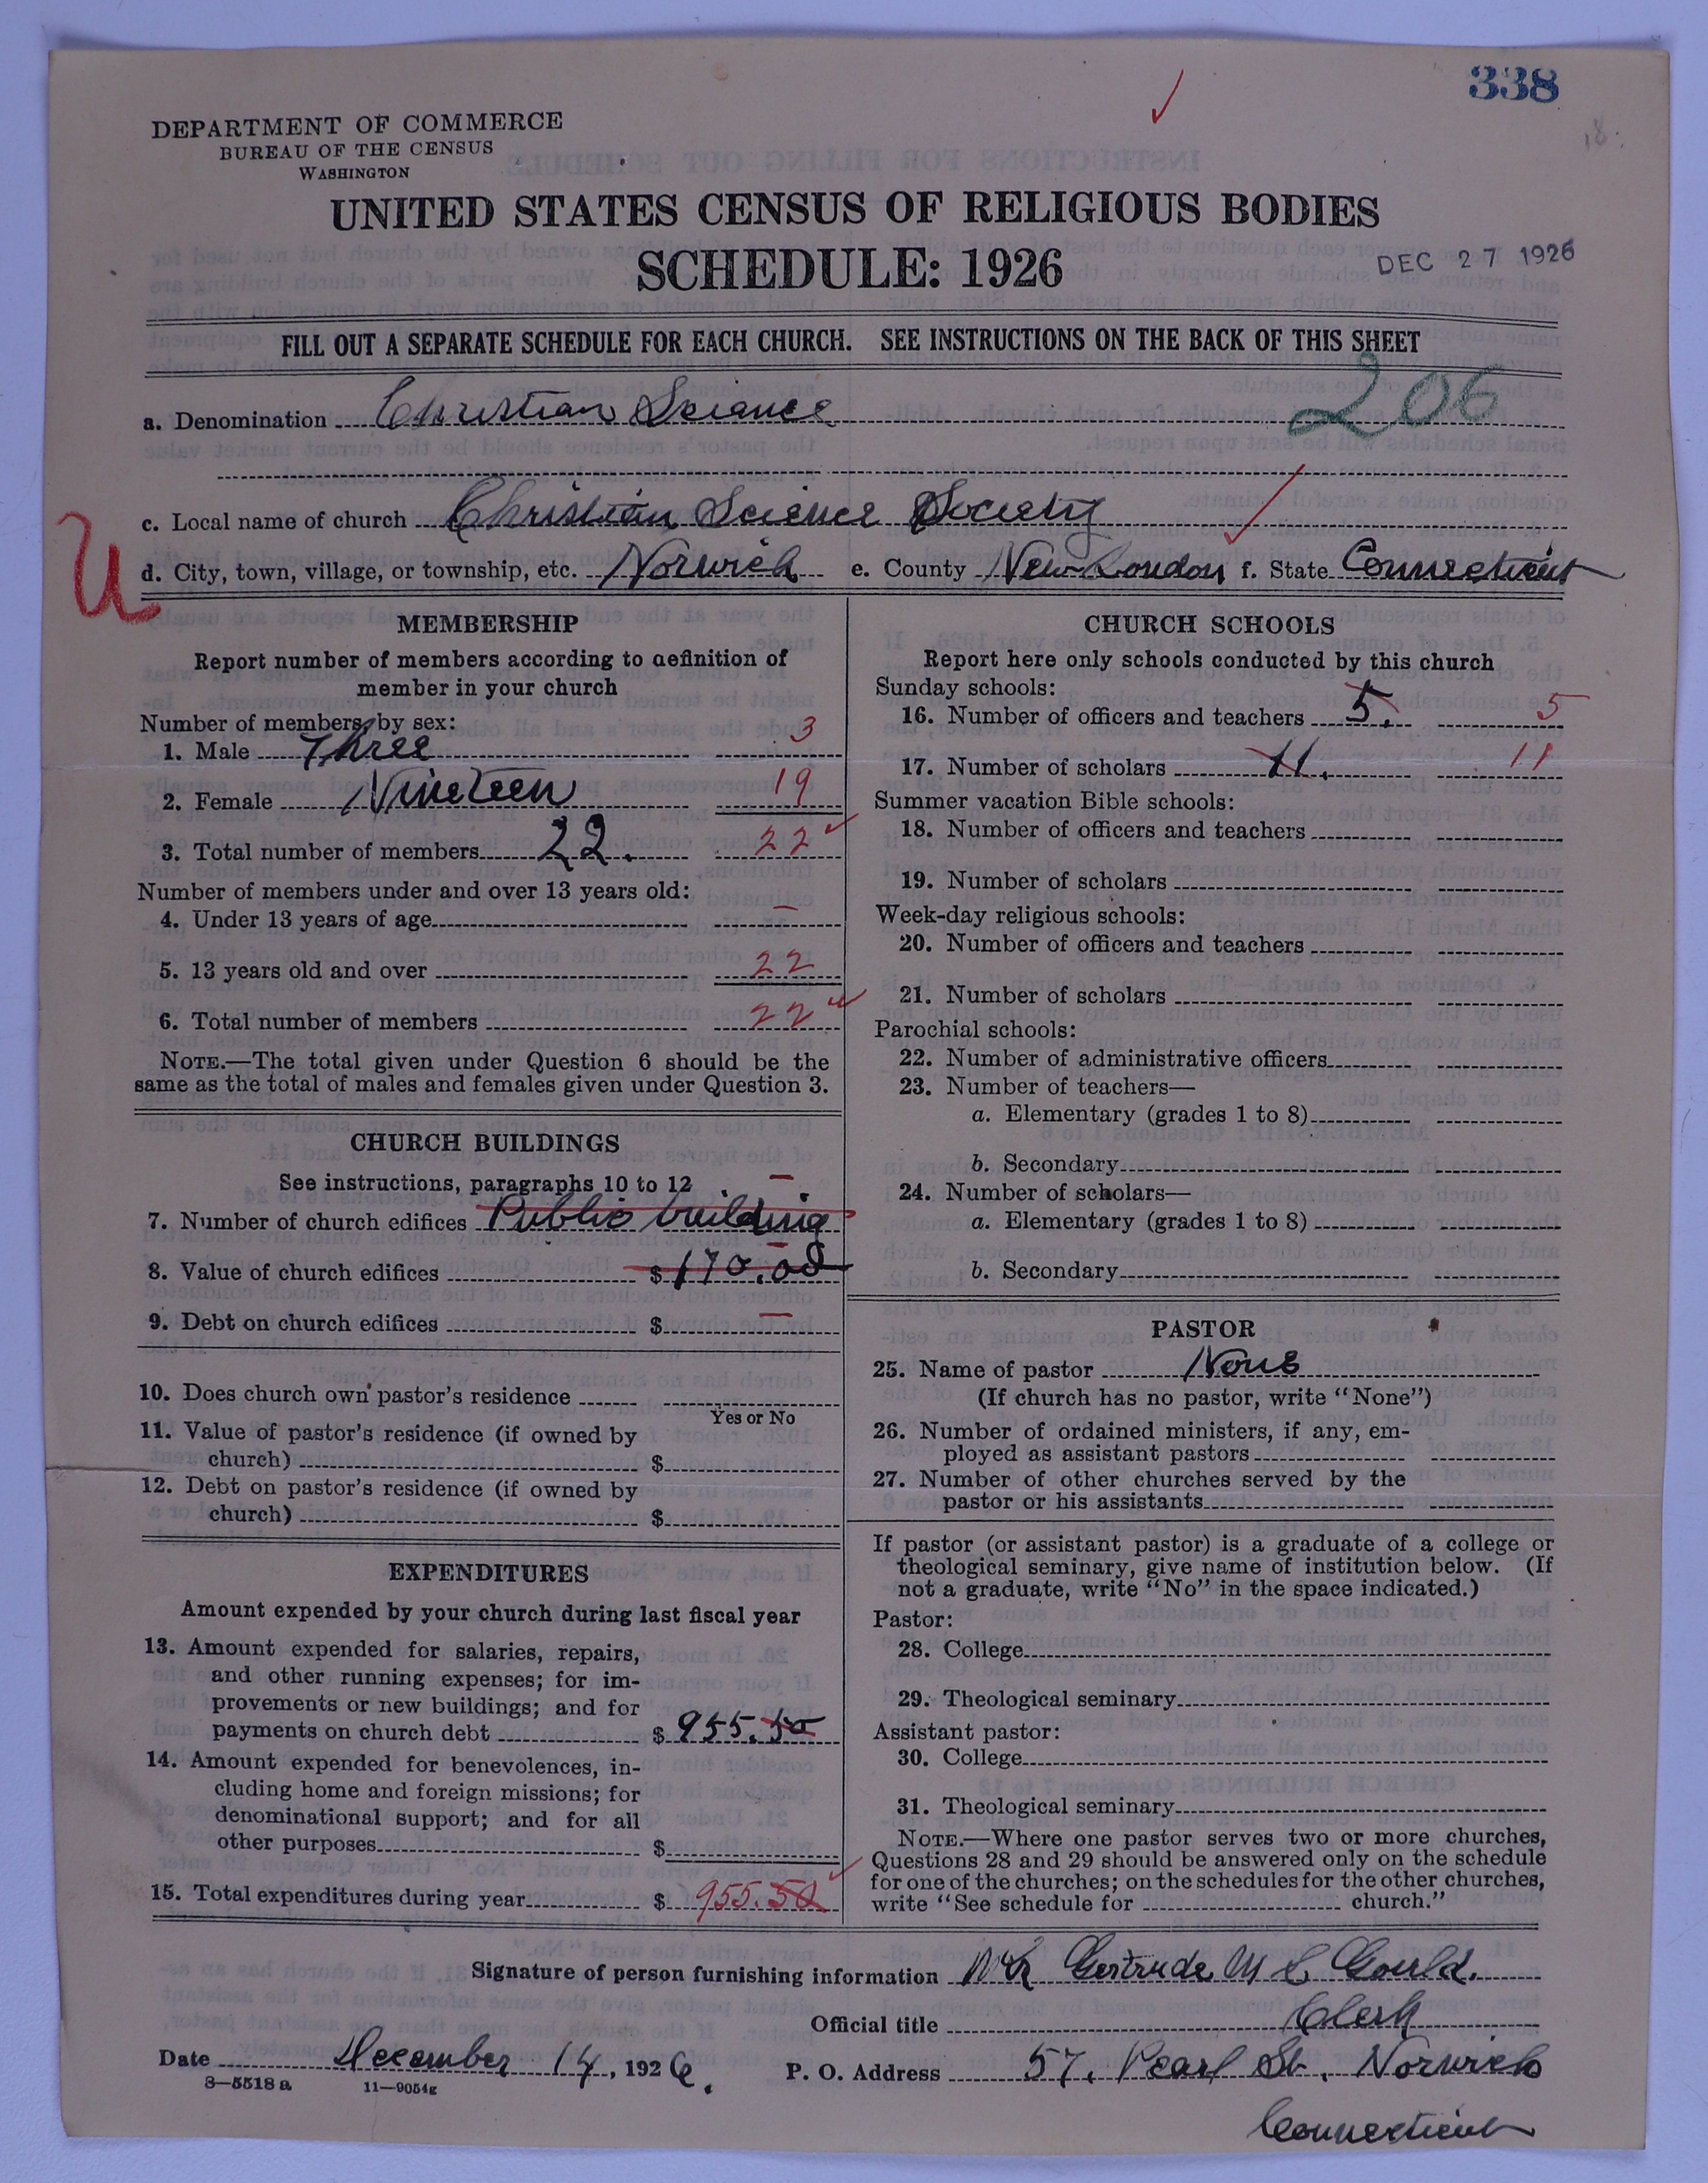 338
DEPARTMENT OF COMMERCE
BUREAU OF THE CENSUS
WASHINGTON
UNITED STATES CENSUS OF RELIGIOUS BODIES
SCHEDULE: 1926
DEC 27 1926
FILL OUT A SEPARATE SCHEDULE FOR EACH CHURCH. SEE INSTRUCTIONS ON THE BACK OF THIS SHEET
a. Denomination Christian Science 206
c. Local name of church Christian Science Society
U
d. City, town, village, or township, etc. Norwich e. County New London f. State Connecticut
MEMBERSHIP
Report number of members according to definition of
member in your church
Number of members by sex:
1. Male Three 3
2. Female Nineteen 19
3. Total number of members 22. 22
Number of members under and over 13 years old:
4. Under 13 years of age –
5. 13 years old and over 22
6. Total number of members 22
NOTE.—The total given under Question 6 should be the
same as the total of males and females given under Question 3.
CHURCH BUILDINGS
See instructions, paragraphs 10 to 12
7. Number of church edifices Public building –
8. Value of church edifices $170.00 –
9. Debt on church edifices $ –
10. Does church own pastor's residence
Yes or No
11. Value of pastor's residence (if owned by
church) $
12. Debt on pastor's residence (if owned by
church) $
EXPENDITURES
Amount expended by your church during last fiscal year
13. Amount expended for salaries, repairs,
and other running expenses; for im-
provements or new buildings; and for
payments on church debt $ 955.50
14. Amount expended for benevolences, in-
cluding home and foreign missions; for
denominational support; and for all
other purposes $
15. Total expenditures during year $ 955.50
CHURCH SCHOOLS
Report here only schools conducted by this church
Sunday schools:
16. Number of officers and teachers 5. 5
17. Number of scholars 11. 11
Summer vacation Bible schools:
18. Number of officers and teachers
19. Number of scholars
Week-day religious schools:
20. Number of officers and teachers
21. Number of scholars
Parochial schools:
22. Number of administrative officers
23. Number of teachers—
a. Elementary (grades 1 to 8)
b. Secondary
24. Number of scholars—
a. Elementary (grades 1 to 8)
b. Secondary
PASTOR
25. Name of pastor None
(If church has no pastor, write "None")
26. Number of ordained ministers, if any, em-
ployed as assistant pastors
27. Number of other churches served by the
pastor or his assistants
If pastor (or assistant pastor) is a graduate of a college or
theological seminary, give name of institution below. (If
not a graduate, write "No" in the space indicated.)
Pastor:
28. College
29. Theological seminary
Assistant pastor:
30. College
31. Theological seminary
NOTE.—Where one pastor serves two or more churches,
Questions 28 and 29 should be answered only on the schedule
for one of the churches; on the schedules for the other churches,
write "See schedule for church."
Signature of person furnishing information Gertrude M C Gould.
Official title Clerk
Date December 14, 1926. P. O. Address 57, Pearl St. Norwich
8—5518 a 11—9054g
Connecticut